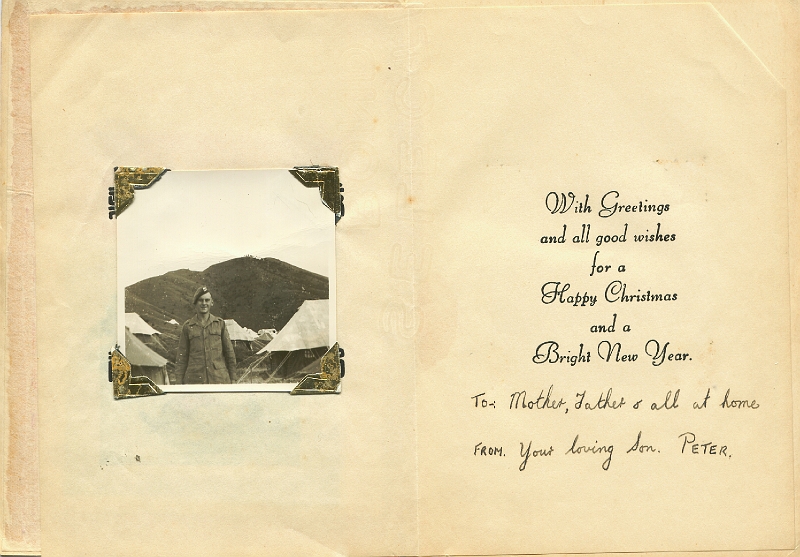 With Greetings
and all good wishes
for a
Happy Christmas
and a
Bright New Year.
To-: Mother, Father & all at home
FROM. Your loving Son. PETER.